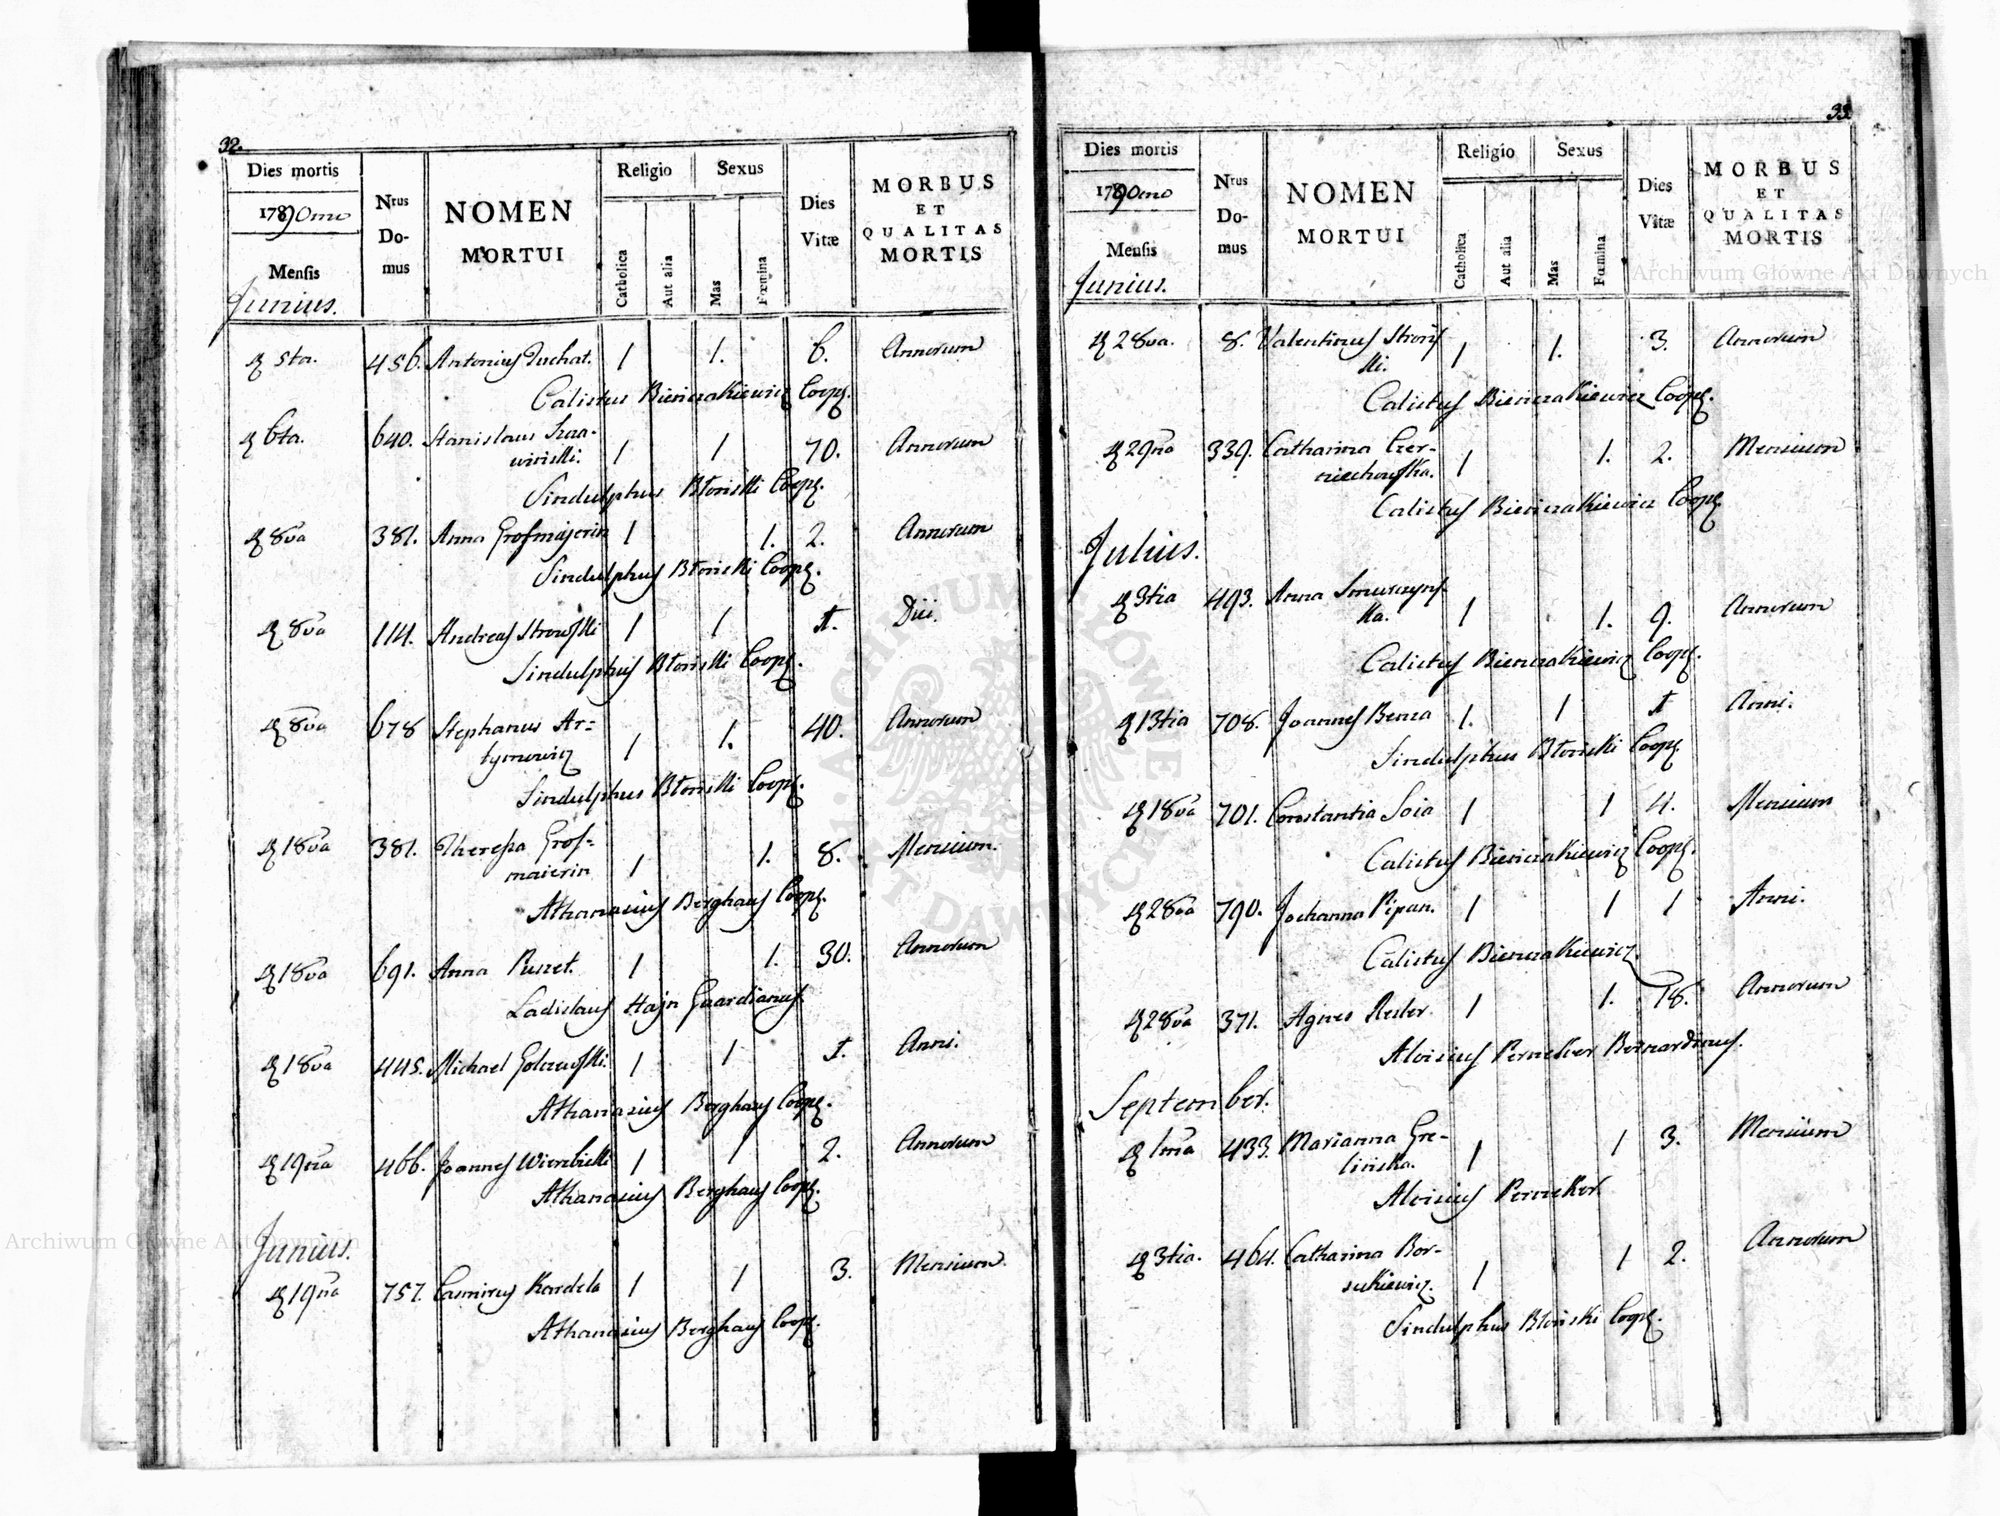 32.
Dies mortis
1790mo
Mensis
Junius.
Nrus Do-mus
NOMEN
MORTUI
Religio
Catholica
Aut alia
Sexus
Mas
Fœmina
Dies
Vitæ
MORBUS
ET
QUALITAS
MORTIS
5ta. 456. Antonius Duchat. 1 1. 6. Annorum
Calistus Bieniaszkiewicz Coop.
6ta. 640. Stanislaus Szra- 1 1 70. Annorum
winski.
Sindulphus Błoński Coop.
8va 381. Anna Grosmajerin 1 1. 2. Annorum
Sindulphus Błoński Coop.
8va 114. Andreas Strowski 1 1 1. Diei.
Sindulphus Błoński Coop.
8va 678 Stephanus Ar- 1 1. 40. Annorum
tymowicz
Sindulphus Błoński Coop.
18va 381. Theressa Gros- 1 1. 8. Mensium.
maierin
Athanasius Berghaus Coop.
18va 691. Anna 1 1. 30. Annorum
Ladislaus Hajn Guardianus
18va 445. Michael Golczewski. 1 1 1. Anni.
Athanasius Berghaus Coop.
19na 466. Joannes Wierzbicki 1 1 2. Annorum
Athanasius Berghaus Coop.
Junius.
19na 757. Casimirus Kardela 1 1 3. Mensium.
Athanasius Berghaus Coop.
33.
Dies mortis
1790mo
Mensis
Junius.
Nrus Do-mus
NOMEN
MORTUI
Religio
Catholica
Aut alia
Sexus
Mas
Fœmina
Dies
Vitæ
MORBUS
ET
QUALITAS
MORTIS
28va. 8. Valentinus Strons 1 1. 3. Annorum
ki.
Calistus Bieniaszkiewicz Coop.
29na 339. Catharina Czer- 1 1. 2. Mensium
niechowska.
Calistus Bieniaszkiewicz Coop.
Julius.
3tia 493. Anna Smurzyns- 1 1. 9. Annorum
ka.
Calistus Bieniaszkiewicz Coop.
13tia 708. Joannes Benza 1. 1 1 Anni.
Sindulphus Błoński Coop.
18va 701. Constantia Soia 1 1 4. Mensium
Calistus Bieniaszkiewicz Coop.
28va 790. Joehanna Pipan. 1 1 1 Anni.
Calistus Bieniaszkiewicz
28va 371. Agnes Reiter. 1 1. 78. Annorum
Aloisius Perneker Bernardinus.
September.
1ma 433. Marianna Gre- 1 1 3. Mensium
lińska.
Aloisius Perneker
3tia. 464. Catharina Bor- 1 1 2. Annorum
sukiewicz.
Sindulphus Błoński Coop.
Archiwum Główne Akt Dawnych
Archiwum Główne Akt Dawnych
ARCHIWUM GŁÓWNE AKT DAWNYCH